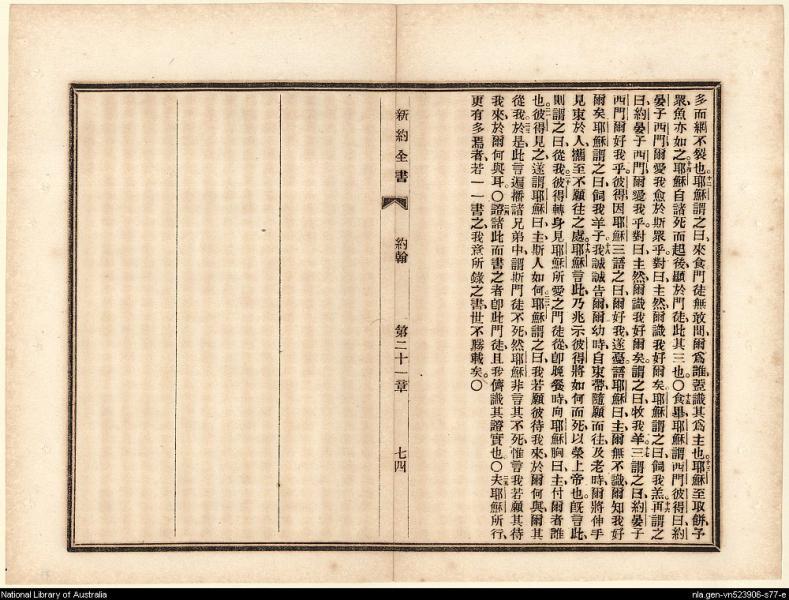 多而網不裂也耶穌謂之曰來食門徒無敢問爾爲誰蓋識其爲主也耶穌至取餅予
衆魚亦如之耶穌自諸死而起後顯於門徒此其三也〇食畢耶穌謂西門彼得曰約
晏子西門爾愛我愈於斯衆乎對曰主然爾識我好爾矣耶穌謂之曰飼我羔再謂之
曰約晏子西門爾愛我乎對曰主然爾識我好爾矣謂之曰牧我羊三謂之曰約晏子
西門爾好我乎彼得因耶穌三語之曰爾好我遂憂謂耶穌曰主爾無不識爾知我好
爾矣耶穌謂之曰飼我羊子我誠誠告爾爾幼時自束帶隨願而往及老時爾將伸手
見束於人攜至不願往之處耶穌言此乃兆示彼得將如何而死以榮上帝也旣言此
則謂之曰從我彼得轉身見耶穌所愛之門徒從卽晚餐時向耶穌胸曰主付爾者誰
也彼得見之遂謂耶穌曰主斯人如何耶穌謂之曰我若願彼待我來於爾何與爾其
從我於是此言遍播諸兄弟中謂斯門徒不死然耶穌非言其不死惟言我若願其待
我來於爾何與耳〇證諸此而書之者卽此門徒且我儕識其證實也〇夫耶穌所行
更有多焉者若一一書之我意所錄之書世不勝載矣〇
新約全書
約翰
第二十一章
七四
National Library of Australia
nla.gen-vn523906-s77-e